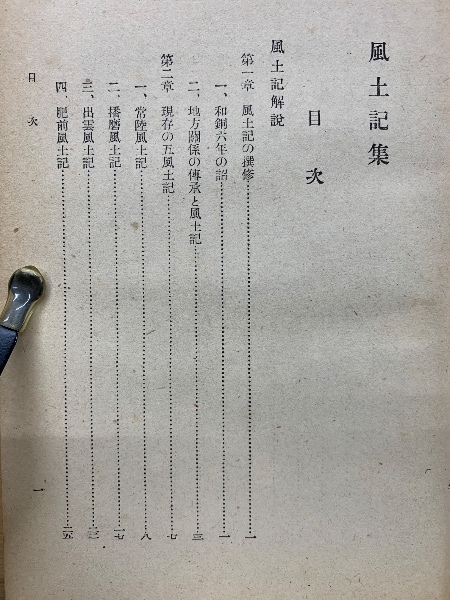 風土記集
目次
風土記解說
第一章 風土記の撰修……一
一、和銅六年の詔……一
二、地方關係の傳承と風土記……三
第二章 現存の五風土記……七
一、常陸風土記……八
二、播磨風土記……一七
三、出雲風土記
四、肥前風土記……二五
目次
一